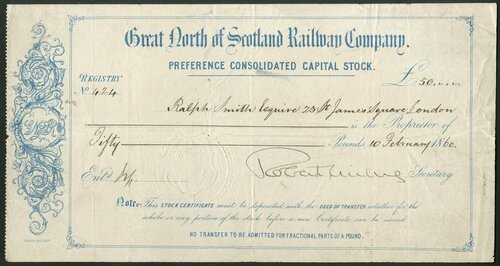 Great North of Scotland Railway Company.
PREFERENCE CONSOLIDATED CAPITAL STOCK.
REGISTRY
No 424
£ 50
Ralph Smith Esquire 23 St James Square London
is the Proprietor of
Fifty Pounds 10 February 1860.
Entd Secretary
Note: This STOCK CERTIFICATE must be deposited with the DEED OF TRANSFER whether for the
whole or any portion of the stock before a new Certificate can be issued
NO TRANSFER TO BE ADMITTED FOR FRACTIONAL PARTS OF A POUND.